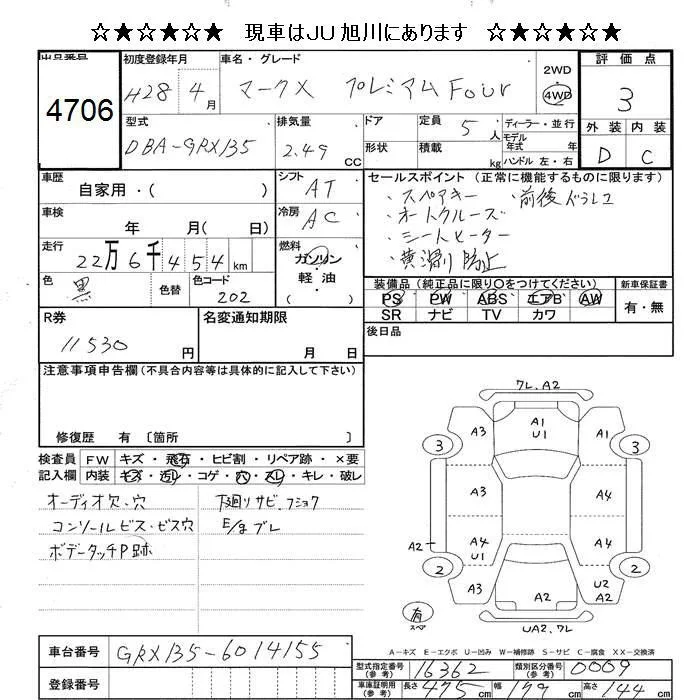 ☆★☆★☆★ 現車はJU旭川にあります ☆★☆★☆★
出品番号 初度登録年月 車名・グレード 評価点
4706 H28年4月 マークX プレミアム Four 2WD 4WD 3
型式 排気量 ドア 定員 5人 ディーラー・並行 外装 内装
DBA-GRX135 2.49 CC 形状 積載 kg モデル年式 年式 ハンドル 左・右 D C
車歴 自家用・( ) シフト AT セールスポイント (正常に機能するものに限ります)
・スペアキー ・前後ドラレコ
車検 年 月( 日) 冷房 AC ・オートクルーズ
・シートヒーター
走行 22万6千454km 燃料 ガソリン 軽・油 ・横滑り防止
色 黒 色替 色コード 202 装備品 (純正品に限り○をつけてください) 新車保証書
PS PW ABS エアB AW 有・無
SR ナビ TV カワ
R券 11530円 名変通知期限 月 日 後日品
注意事項申告欄 (不具合内容等は具体的に記入して下さい)
修復歴 有 〔箇所 〕
検査員 FW キズ・飛石・ヒビ割・リペア跡・×要
記入欄 内装 キズ・汚レ・コゲ・穴・スレ・キレ・破レ
オーディオ欠・穴 下廻りサビ.フショク
コンソールビス・ビス穴 E/gブレ
ボデータッチP跡
7L.A2
A3 A1 U1 A3
3 3
A3 A4
A2 A4 U1 A4
2 2
A3 A2 U2 A2
有 スペア UA2.7L
A－キズ E－エクボ U－凹み W－補修跡 S－サビ C－腐食 XX－交換済
車台番号 GRX135-6014155
登録番号
型式指定番号 (参考) 16362 類別区分番号 (参考) 0009
車庫証明用 (参考) 長さ 475cm 幅 179cm 高さ 144cm